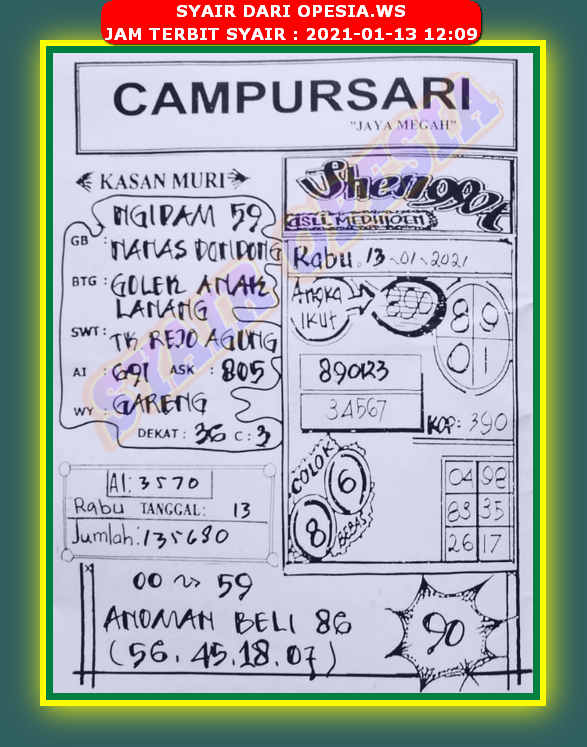 SYAIR DARI OPESIA.WS
JAM TERBIT SYAIR : 2021-01-13 12:09
CAMPURSARI
"JAYA MEGAH"
KASAN MURI
NGIDAM 59
GB : NANAS DONDONG
BTG : GOLEK ANAK
LANANG
SWT : TK REJO AGUNG
AI : 691 ASK : 805
WY : GARENG
DEKAT : 36 C : 3
AI: 3570
Rabu TANGGAL: 13
Jumlah: 135680
ASLI MEDIHOEN
Rabu. 13-01-2021
Angka
IKUT
890
8 9
0 1
890123
34567
KOP: 390
COLOK
6
8
BEBAS
04 98
83 35
26 17
00 ~> 59
ANOMAN BELI 86
(56. 45. 18. 07)
90
SYAIR OPESIA